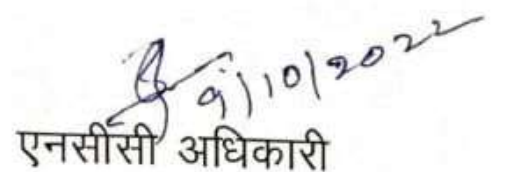 9/10/2022
एनसीसी अधिकारी